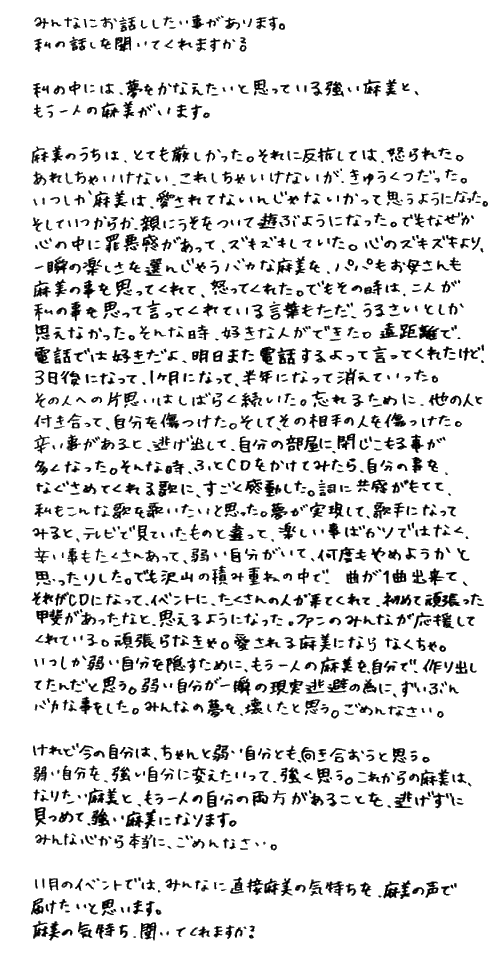 みんなにお話ししたい事があります。
私の話しを聞いてくれますか？
私の中には、夢をかなえたいと思っている強い麻美と、
もう一人の麻美がいます。
麻美のうちは、とても厳しかった。それに反抗しては、怒られた。
あれしちゃいけない、これしちゃいけないが、きゅうくつだった。
いつしか麻美は、愛されてないんじゃないかって思うようになった。
そしていつからか、親にうそをついて遊ぶようになった。でもなぜか
心の中に罪悪感があって、ズキズキしていた。心のズキズキより、
一瞬の楽しさを選んじゃうバカな麻美を、パパもお母さんも
麻美の事を思ってくれて、怒ってくれた。でもその時は、二人が
私の事を思って言ってくれている言葉もただ、うるさいとしか
思えなかった。そんな時、好きな人ができた。遠距離で、
電話では好きだよ、明日また電話するよって言ってくれたけど、
3日後になって、1ヶ月になって、半年になって消えていった。
その人への片思いはしばらく続いた。忘れるために、他の人と
付き合って、自分を傷つけた。そして、その相手の人を傷つけた。
辛い事があると、逃げ出して、自分の部屋に、閉じこもる事が
多くなった。そんな時、ふとCDをかけてみたら、自分の事を、
なぐさめてくれる歌に、すごく感動した。詞に共感がもてて、
私もこんな歌を歌いたいと思った。夢が実現して、歌手になって
みると、テレビで見ていたものと違って、楽しい事ばかりではなく、
辛い事もたくさんあって、弱い自分がいて、何度もやめようかと
思ったりした。でも沢山の積み重ねの中で、曲が1曲出来て、
それがCDになって、イベントに、たくさんの人が来てくれて、初めて頑張った
甲斐があったなと、思えるようになった。ファンのみんなが応援して
くれている。頑張らなきゃ。愛される麻美にならなくちゃ。
いつしか弱い自分を隠すために、もう一人の麻美を、自分で、作り出し
てたんだと思う。弱い自分が一瞬の現実逃避の為に、ずいぶん
バカな事をした。みんなの夢を、壊したと思う。ごめんなさい。
けれど今の自分は、ちゃんと弱い自分とも、向き合おうと思う。
弱い自分を、強い自分に変えたいって、強く思う。これからの麻美は、
なりたい麻美と、もう一人の自分の両方があることを、逃げずに
見つめて、強い麻美になります。
みんな心から本当に、ごめんなさい。
11月のイベントでは、みんなに直接麻美の気持ちを、麻美の声で
届けたいと思います。
麻美の気持ち、聞いてくれますか？